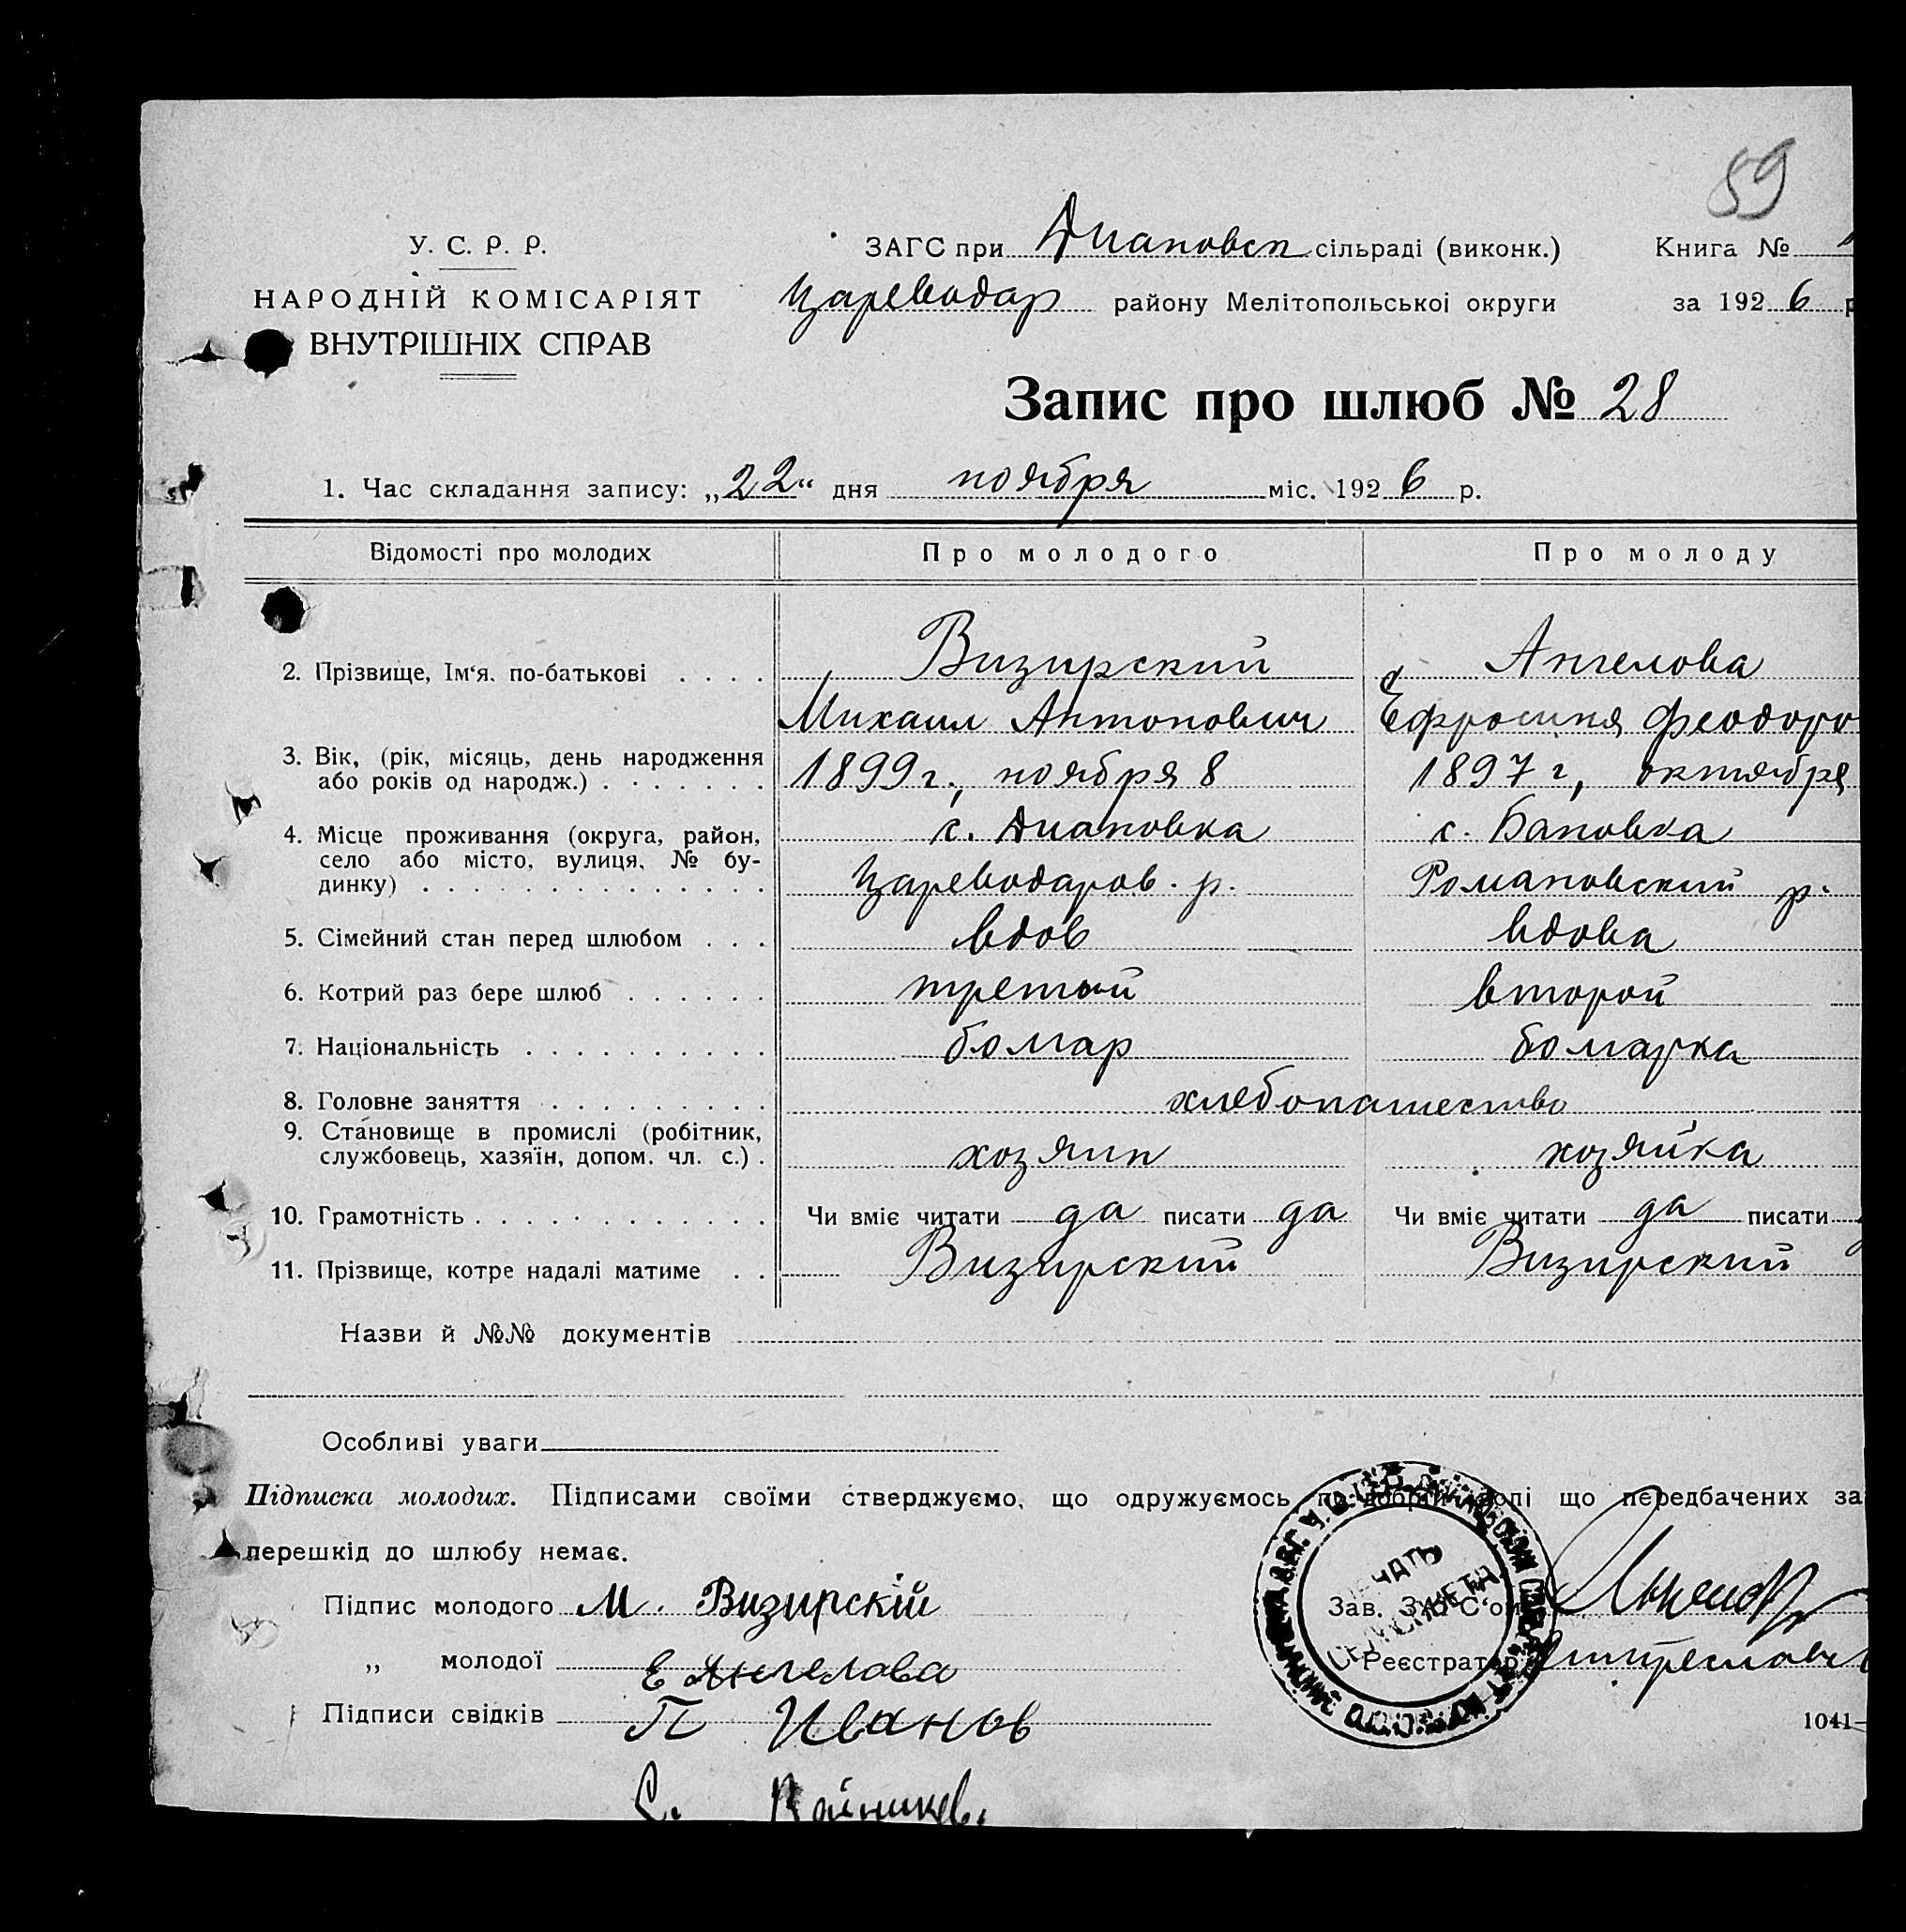 59
У. С. Р. Р.
НАРОДНІЙ КОМІСАРІЯТ
ВНУТРІШНІХ СПРАВ
ЗАГС при Диановск сільраді (виконк.)
Книга №
Цареводар району Мелітопольської округи
за 1926 р
Запис про шлюб № 28
1. Час складання запису: „22“ дня ноября міс. 1926 р.
Відомості про молодих Про молодого Про молоду
2. Прізвище, Ім‘я, по-батькові . . . . Визирский Ангелова
Михаил Антонович Ефросиня Феодоро
3. Вік, (рік, місяць, день народження
або років од народж.) . . . . . . . 1899 г., ноября 8 1897 г, октября
4. Місце проживання (округа, район, с. Диановка с. Бановка
село або місто, вулиця, № бу-
динку) . . . . . . . . . . . . . . Цареводаров. р. Романовский р.
5. Сімейний стан перед шлюбом . . . вдов вдова
6. Котрий раз бере шлюб . . . . . . третий второй
7. Національність . . . . . . . . . . болгар болгарка
8. Головне заняття . . . . . . . . . хлебопашество
9. Становище в промислі (робітник,
службовець, хазяїн, допом. чл. с.) . хозяин хозяйка
10. Грамотність . . . . . . . . . . . . Чи вміє читати да писати да Чи вміє читати да писати
11. Прізвище, котре надалі матиме . . Визирский Визирский
Назви й №№ документів
Особливі уваги
Підписка молодих. Підписами своїми стверджуємо, що одружуємось по добрій волі що передбачених за
перешкід до шлюбу немає.
Підпис молодого М. Визирскій
Зав. ЗАГС‘ом
„ молодої Е Ангелова
Реєстратор
Підписи свідків П Иванов
1041
С.